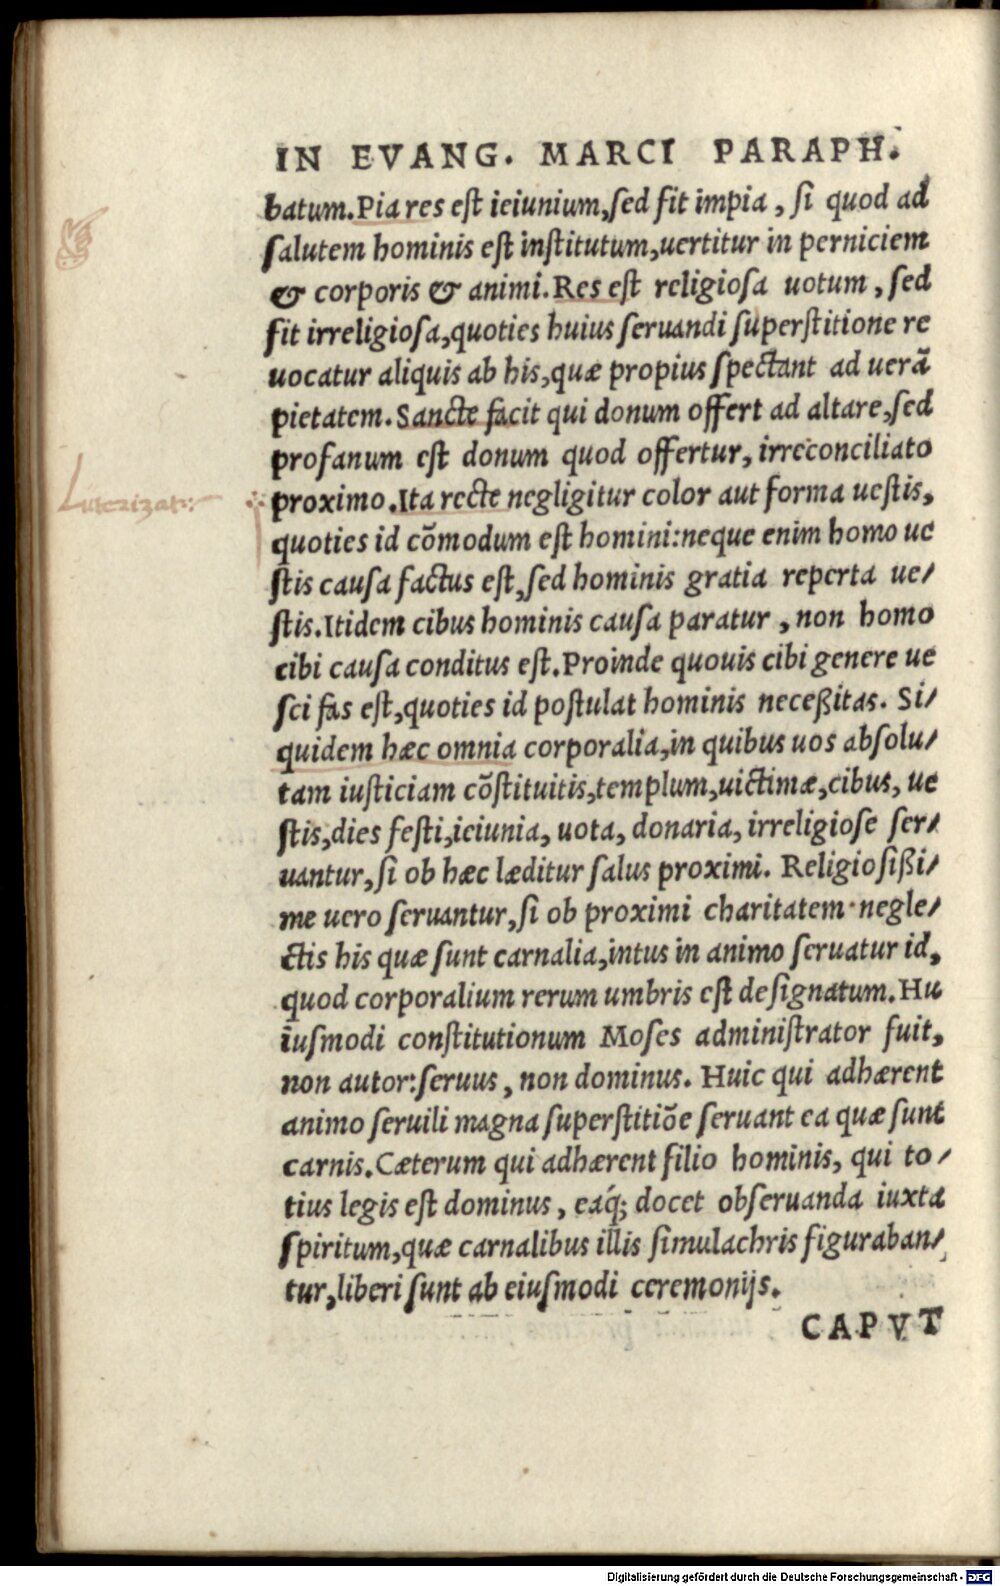 IN EVANG. MARCI PARAPH.
batum. Pia res est ieiunium, sed fit impia, si quod ad
salutem hominis est institutum, uertitur in perniciem
& corporis & animi. Res est religiosa uotum, sed
fit irreligiosa, quoties huius seruandi superstitione re
uocatur aliquis ab his, quæ propius spectant ad uerã
pietatem. Sancte facit qui donum offert ad altare, sed
profanum est donum quod offertur, irreconciliato
Luterizat:
proximo. Ita recte negligitur color aut forma uestis,
quoties id cõmodum est homini: neque enim homo ue
stis causa factus est, sed hominis gratia reperta ue/
stis. Itidem cibus hominis causa paratur, non homo
cibi causa conditus est. Proinde quouis cibi genere ue
sci fas est, quoties id postulat hominis neceßitas. Si/
quidem hæc omnia corporalia, in quibus uos absolu/
tam iusticiam cõstituitis, templum, uictimæ, cibus, ue
stis, dies festi, ieiunia, uota, donaria, irreligiose ser/
uantur, si ob hæc læditur salus proximi. Religiosißi/
me uero seruantur, si ob proximi charitatem negle/
ctis his quæ sunt carnalia, intus in animo seruatur id,
quod corporalium rerum umbris est designatum. Hu
iusmodi constitutionum Moses administrator fuit,
non autor: seruus, non dominus. Huic qui adhærent
animo seruili magna superstitiõe seruant ea quæ sunt
carnis. Cæterum qui adhærent filio hominis, qui to/
tius legis est dominus, eáq; docet obseruanda iuxta
spiritum, quæ carnalibus illis simulachris figuraban/
tur, liberi sunt ab eiusmodi ceremonijs.
CAPVT
Digitalisierung gefördert durch die Deutsche Forschungsgemeinschaft - DFG